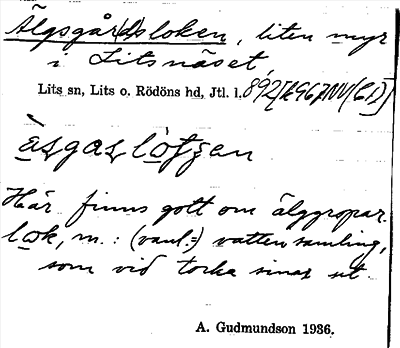 Älgsgår(d)sloken, liten myr
i Litsnäset
Lits sn, Lits o. Rödöns hd, Jtl. l.
Här finns gott om älggropar.
lok, m.: (vanl.=) vattensamling,
som vid torka sinar ut.
A. Gudmundson 1936.